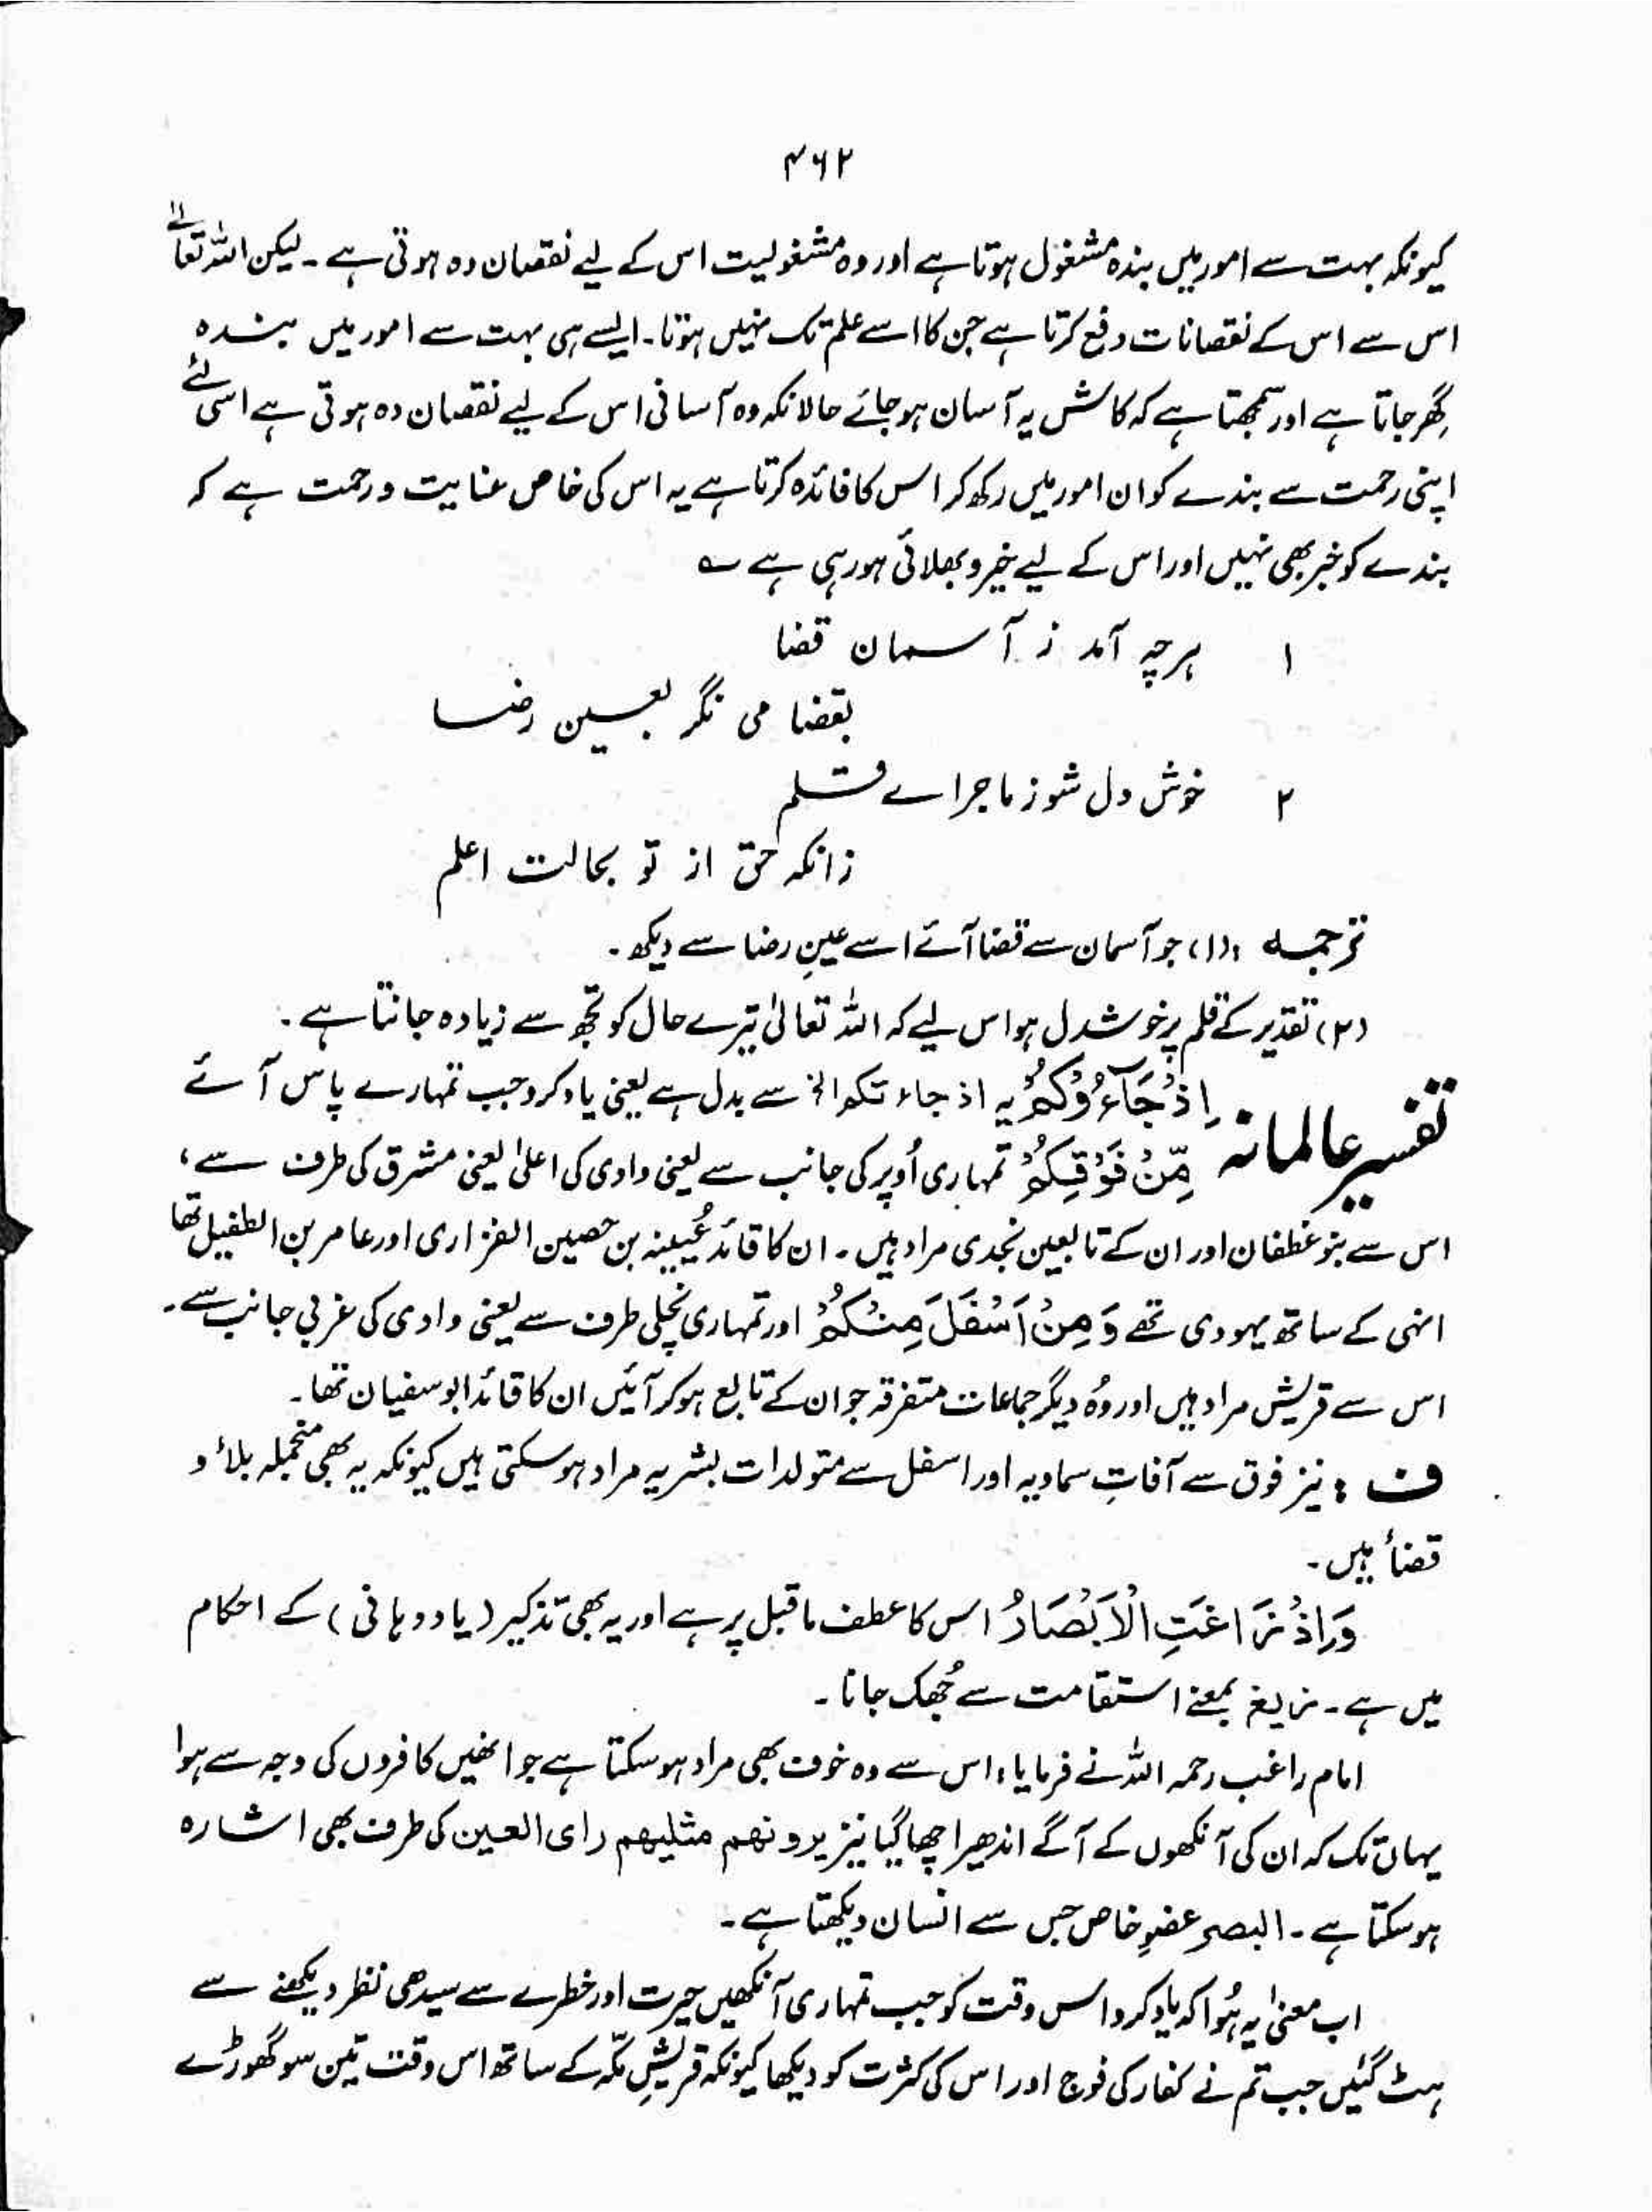 ۴۶۲
کیونکہ بہت سے امور میں بندہ مشغول ہوتا ہے اور وہ مشغولیت اس کے لیے نقصان دہ ہوتی ہے ۔ لیکن اللہ تعالیٰ
اس سے اس کے نقصانات دفع کرتا ہے جن کا اسے علم تک نہیں ہوتا۔ ایسے ہی بہت سے امور میں بندہ
گِھر جاتا ہے اور سمجھتا ہے کہ کاش یہ آسان ہو جائے حالانکہ وہ آسانی اس کے لیے نقصان دہ ہوتی ہے اسی لئے
اپنی رحمت سے بندے کو ان امور میں رکھ کر اس کا فائدہ کرتا ہے یہ اس کی خاص عنایت و رحمت ہے کہ
بندے کو خبر بھی نہیں اور اس کے لیے خیر و بھلائی ہو رہی ہے ؎
۱ ہرچہ آمد ز آسمان قضا
بقضا می نگر بعین رضا
۲ خوش دل شو ز ماجراے قلم
زانکہ حق از تو بحالت اعلم
ترجمہ : (۱) جو آسمان سے قضا آئے اسے عینِ رضا سے دیکھ ۔
(۲) تقدیر کے قلم پر خوشدل ہو اس لیے کہ اللہ تعالیٰ تیرے حال کو تجھ سے زیادہ جانتا ہے ۔
تفسیر عالمانہ اِذْ جَآءُوْكُمْ یہ اذ جاءتکم الخ سے بدل ہے یعنی یاد کرو جب تمہارے پاس آئے
مِّنْ فَوْقِكُمْ تمہاری اُوپر کی جانب سے یعنی وادی کی اعلیٰ یعنی مشرق کی طرف سے ،
اس سے بنو غطفان اور ان کے تابعین نجدی مراد ہیں ۔ ان کا قائد عُیینہ بن حصین الفزاری اور عامر بن الطفیل تھا
انہی کے ساتھ یہودی تھے وَ مِنْ اَسْفَلَ مِنْكُمْ اور تمہاری نچلی طرف سے یعنی وادی کی غربی جانب سے ۔
اس سے قریش مراد ہیں اور وُہ دیگر جماعات متفرقہ جو ان کے تابع ہو کر آئیں ان کا قائد ابوسفیان تھا ۔
ف : نیز فوق سے آفاتِ سماویہ اور اسفل سے متولدات بشریہ مراد ہو سکتی ہیں کیونکہ یہ بھی منجملہ بلاء و
قضاء ہیں ۔
وَ اِذْ زَاغَتِ الْاَبْصَارُ اس کا عطف ماقبل پر ہے اور یہ بھی تذکیر (یاد دہانی) کے احکام
میں ہے ۔ زیغ بمعنے استقامت سے جُھک جانا ۔
امام راغب رحمہ اللہ نے فرمایا ، اس سے وہ خوف بھی مراد ہو سکتا ہے جو انھیں کافروں کی وجہ سے ہوا
یہاں تک کہ ان کی آنکھوں کے آگے اندھیرا چھا گیا نیز یرونهم مثلیهم رای العین کی طرف بھی اشارہ
ہو سکتا ہے ۔ البصر عضوِ خاص جس سے انسان دیکھتا ہے ۔
اب معنیٰ یہ ہُوا کہ یاد کرو اس وقت کو جب تمہاری آنکھیں حیرت اور خطرے سے سیدھی نظر دیکھنے سے
ہٹ گئیں جب تم نے کفار کی فوج اور اس کی کثرت کو دیکھا کیونکہ قریشِ مکّہ کے ساتھ اس وقت تین سو گھوڑے